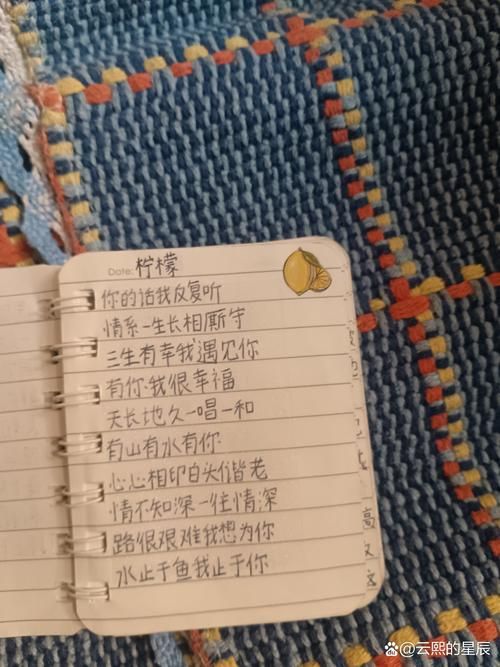 Date: 柠檬
你的话我反复听
情系一生长相厮守
三生有幸我遇见你
有你我很幸福
天长地久一唱一和
有山有水有你
心心相印白头偕老
情不知深一往情深
路很艰难我想为你
水止于鱼我止于你
高
文
@云熙的星辰